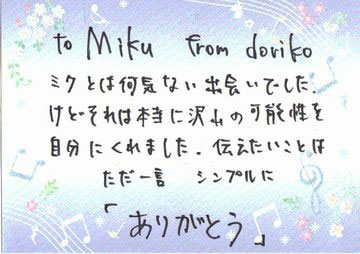 to Miku from doriko
ミクとは何気ない出会いでした.
けどそれは本当に沢山の可能性を
自分にくれました. 伝えたいことは
ただ一言 シンプルに
「ありがとう」